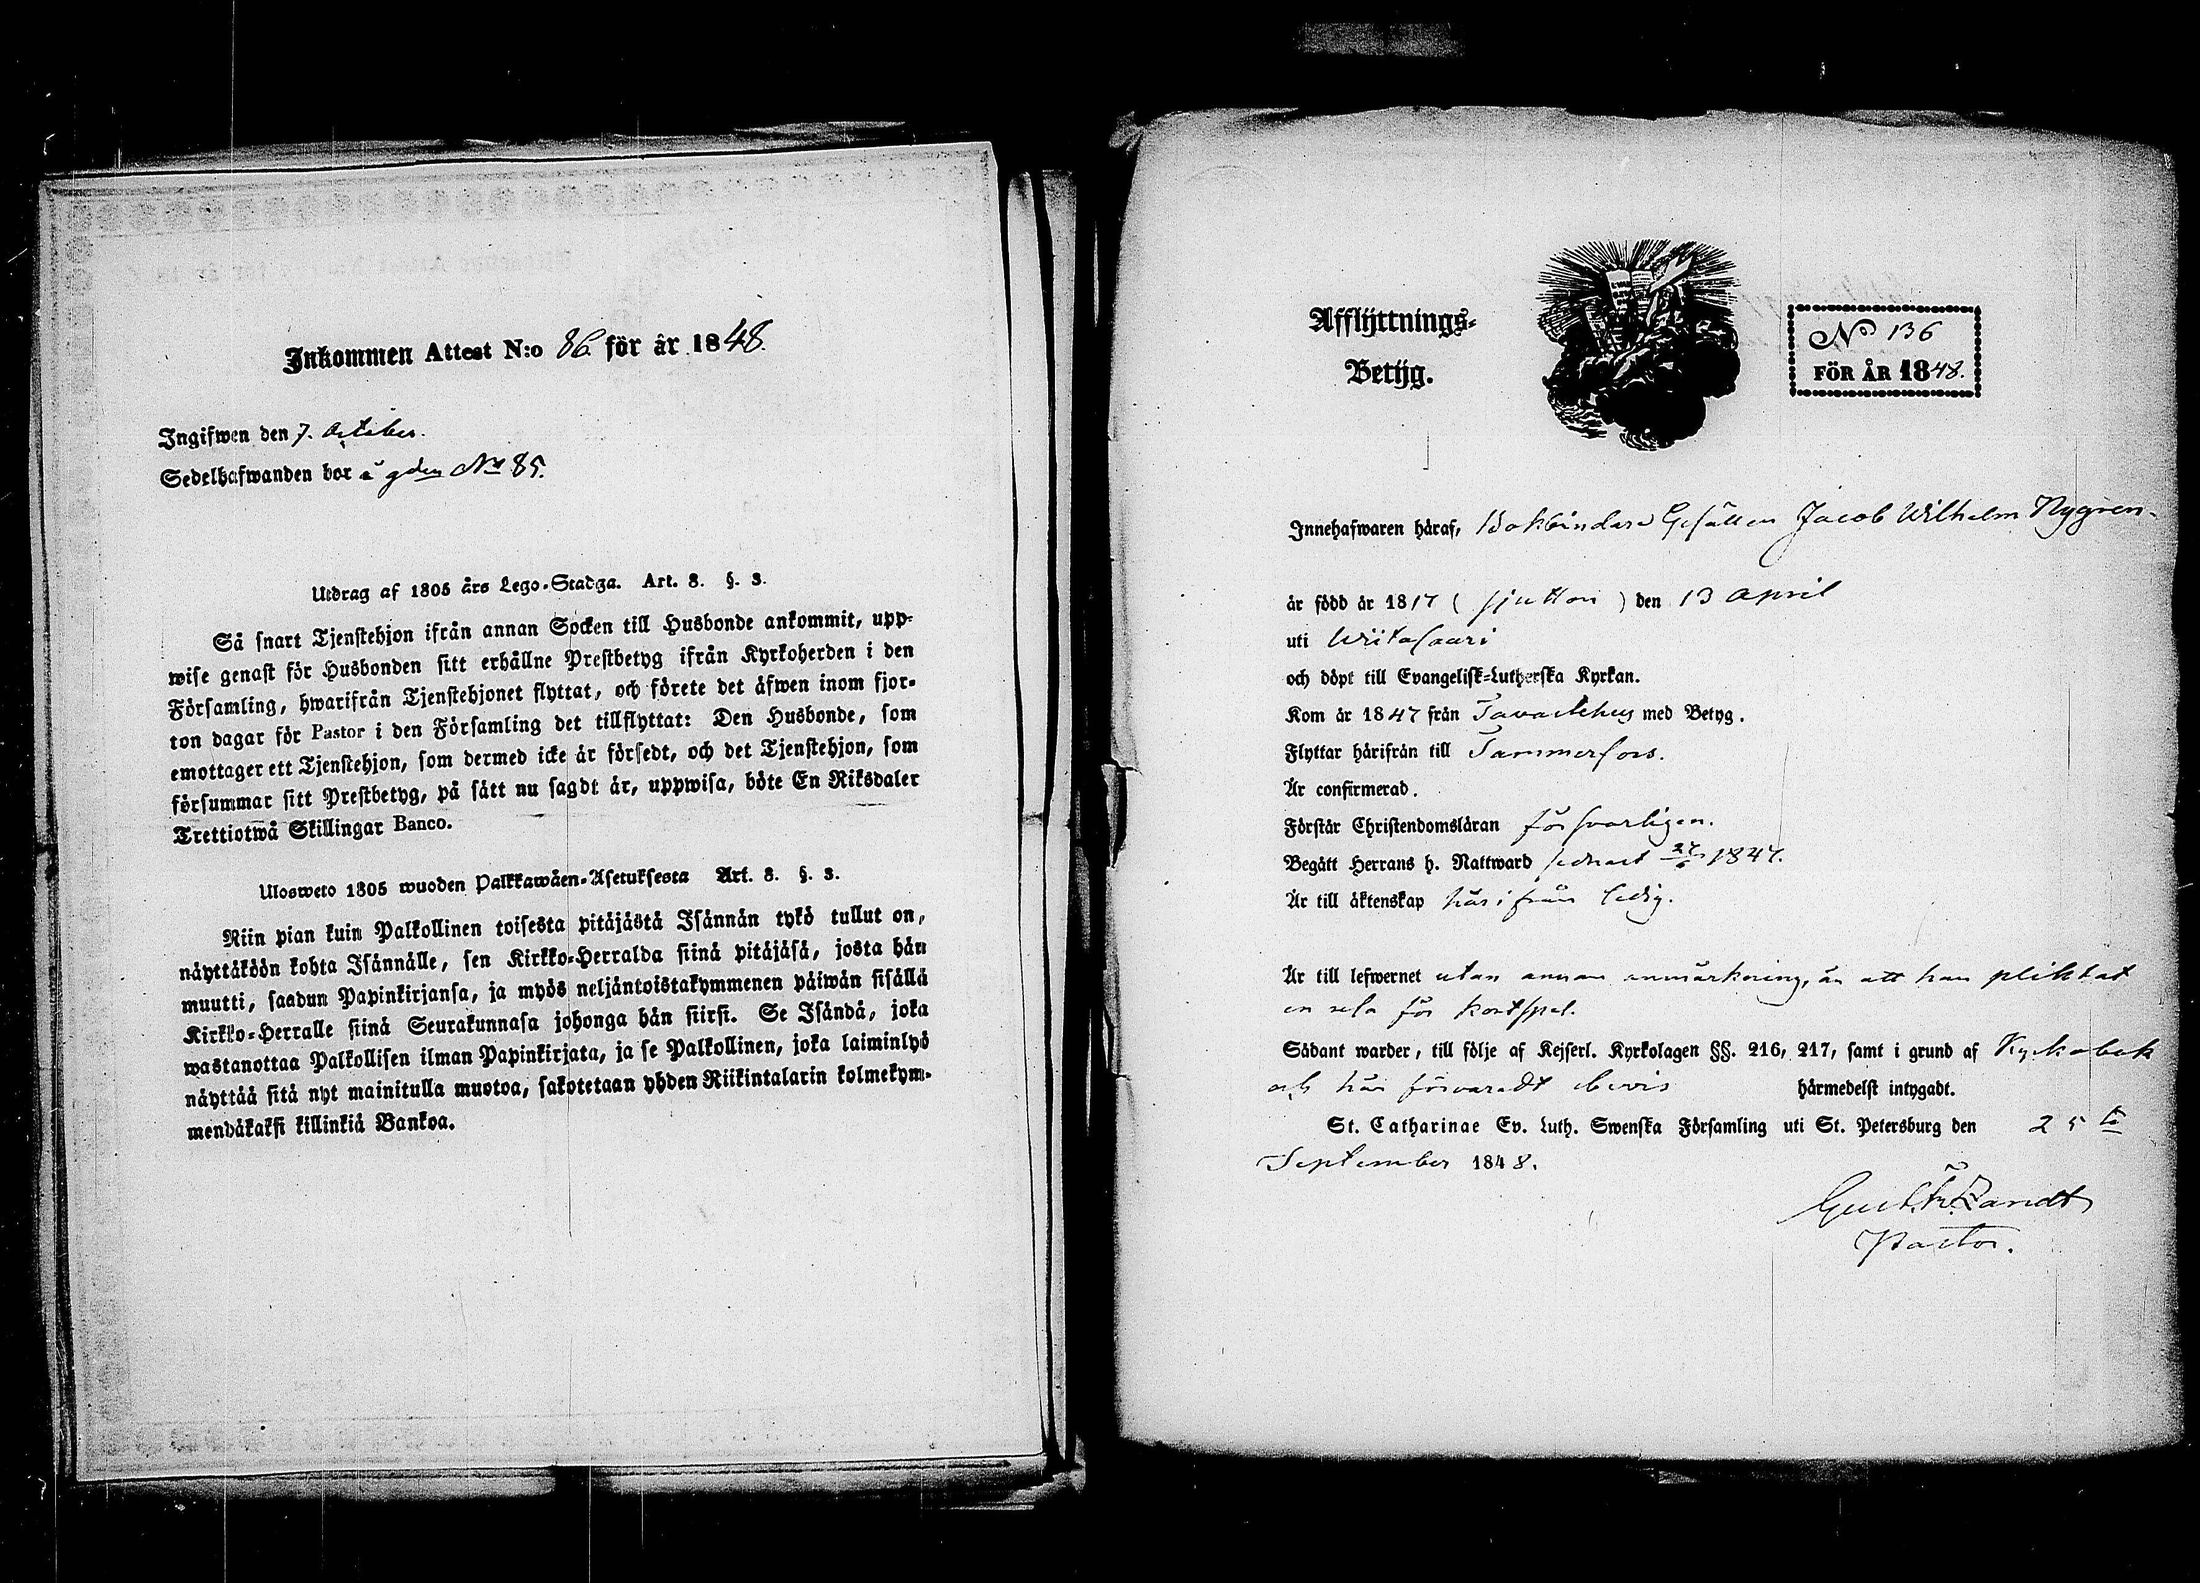 Inkommen Attest N:o 86. för år 1848.
Ingifwen den 7. october.
Sedelhafwanden bor å gden No 85.
Utdrag af 1805 års Lego-Stadga. Art. 8. §. 3.
Så snart Tjenstehjon ifrån annan Socken till Husbonde ankommit, upp-
wise genast för Husbonden sitt erhållne Prestbetyg ifrån Kyrkoherden i den
Församling, hwarifrån Tjenstehjonet flyttat, och förete det äfwen inom fjor-
ton dagar för Pastor i den Församling det tillflyttat: Den Husbonde, som
emottager ett Tjenstehjon, som dermed icke är försedt, och det Tjenstehjon, som
försummar sitt Prestbetyg, på sätt nu sagdt är, uppwisa, böte En Riksdaler
Trettiotwå Skillingar Banco.
Ulosweto 1805 wuoden Palkkawäen-Asetuksesta Art. 8. §. 3.
Niin pian kuin Palkollinen toisesta pitäjästä Isännän tykö tullut on,
näyttäköön kohta Isännälle, sen Kirkko-Herralda siinä pitäjäsä, josta hän
muutti, saadun Papinkirjansa, ja myös neljäntoistakymmenen päiwän sisällä
Kirkko-Herralle siinä Seurakunnasa johonga hän siirsi. Se Isändä, joka
wastanottaa Palkollisen ilman Papinkirjata, ja se Palkollinen, joka laiminlyö
näyttää sitä nyt mainitulla muotoa, sakotetaan yhden Riikintalarin kolmekym-
mendäkaksi killinkiä Bankoa.
Afflyttnings-
Betyg.
No 136
FÖR ÅR 1848.
Innehafwaren häraf, Bokbindare Gesällen Jacob Wilhelm Nygren
är född år 1817 (sjutton) den 13 April
uti Wiitasaari
och döpt till Evangelisk-Lutherska Kyrkan.
Kom år 1847 från Tavastehus med Betyg.
Flyttar härifrån till Tammerfors.
Är confirmerad.
Förstår Christendomsläran försvarligen.
Begått Herrans h. Nattward sednast 27/6 1847.
Är till äktenskap härifrån ledig.
Är till lefwernet utan annan anmärkning, än att han pliktat
en resa för kortspel.
Sådant warder, till följe af Kejserl. Kyrkolagen §§. 216, 217, samt i grund af Kyrkobok
och här förvaradt bevis härmedelst intygadt.
St. Catharinae Ev. Luth. Swenska Församling uti St. Petersburg den 25
September 1848.
Gust. Fr. Zandt
Pastor.